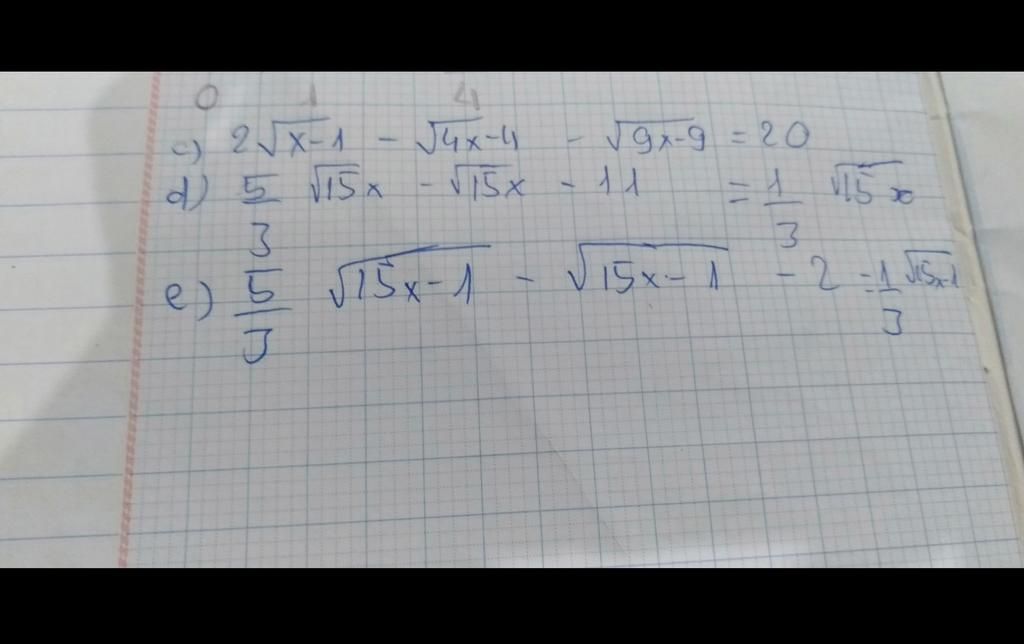 0 1 4
c) 2√x-1 - √4x-4 - √9x-9 = 20
d) 5/3 √15x - √15x - 11 = 1/3 √15x
e) 5/3 √15x-1 - √15x-1 - 2 = 1/3 √15x-1